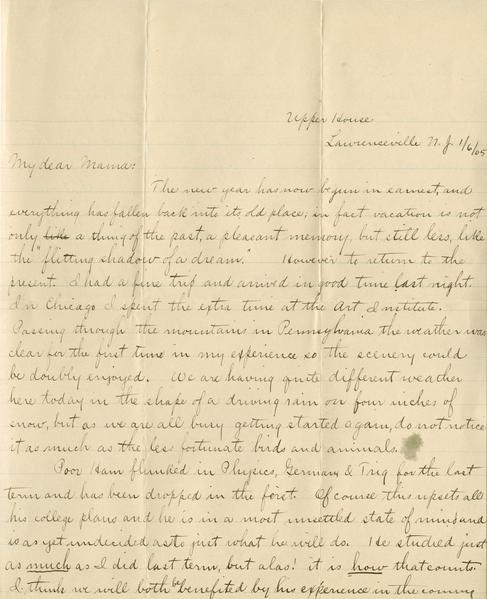 Upper House
Lawrenceville N.J 1/6/05
My dear Mama:
The new year has now begun in earnest, and
everything has fallen back into its old place; in fact vacation is not
only like a thing of the past, a pleasant memory, but still less, like
the "flitting shadow of a dream." However to return to the
present. I had a fine trip and arrived in good time last night.
In Chicago I spent the extra time at the Art Institute.
Passing through the mountains in Pennsylvania the weather was
clear for the first time in my experience so the scenery could
be doubly enjoyed. We are having quite different weather
here today in the shape of a driving rain on four inches of
snow, but as we are all busy getting started again, do not notice
it as much as the less fortunate birds and animals.
Poor Ham flunked in Physics, German, & Trig for the last
term and has been dropped in the first. Of course this upsets all
his college plans and he is in a most unsettled state of mind and
is as yet undecided as to just what he will do. He studied just
as much as I did last term, but alas! it is how that counts.
I think we will both be benefited by his experience in the coming